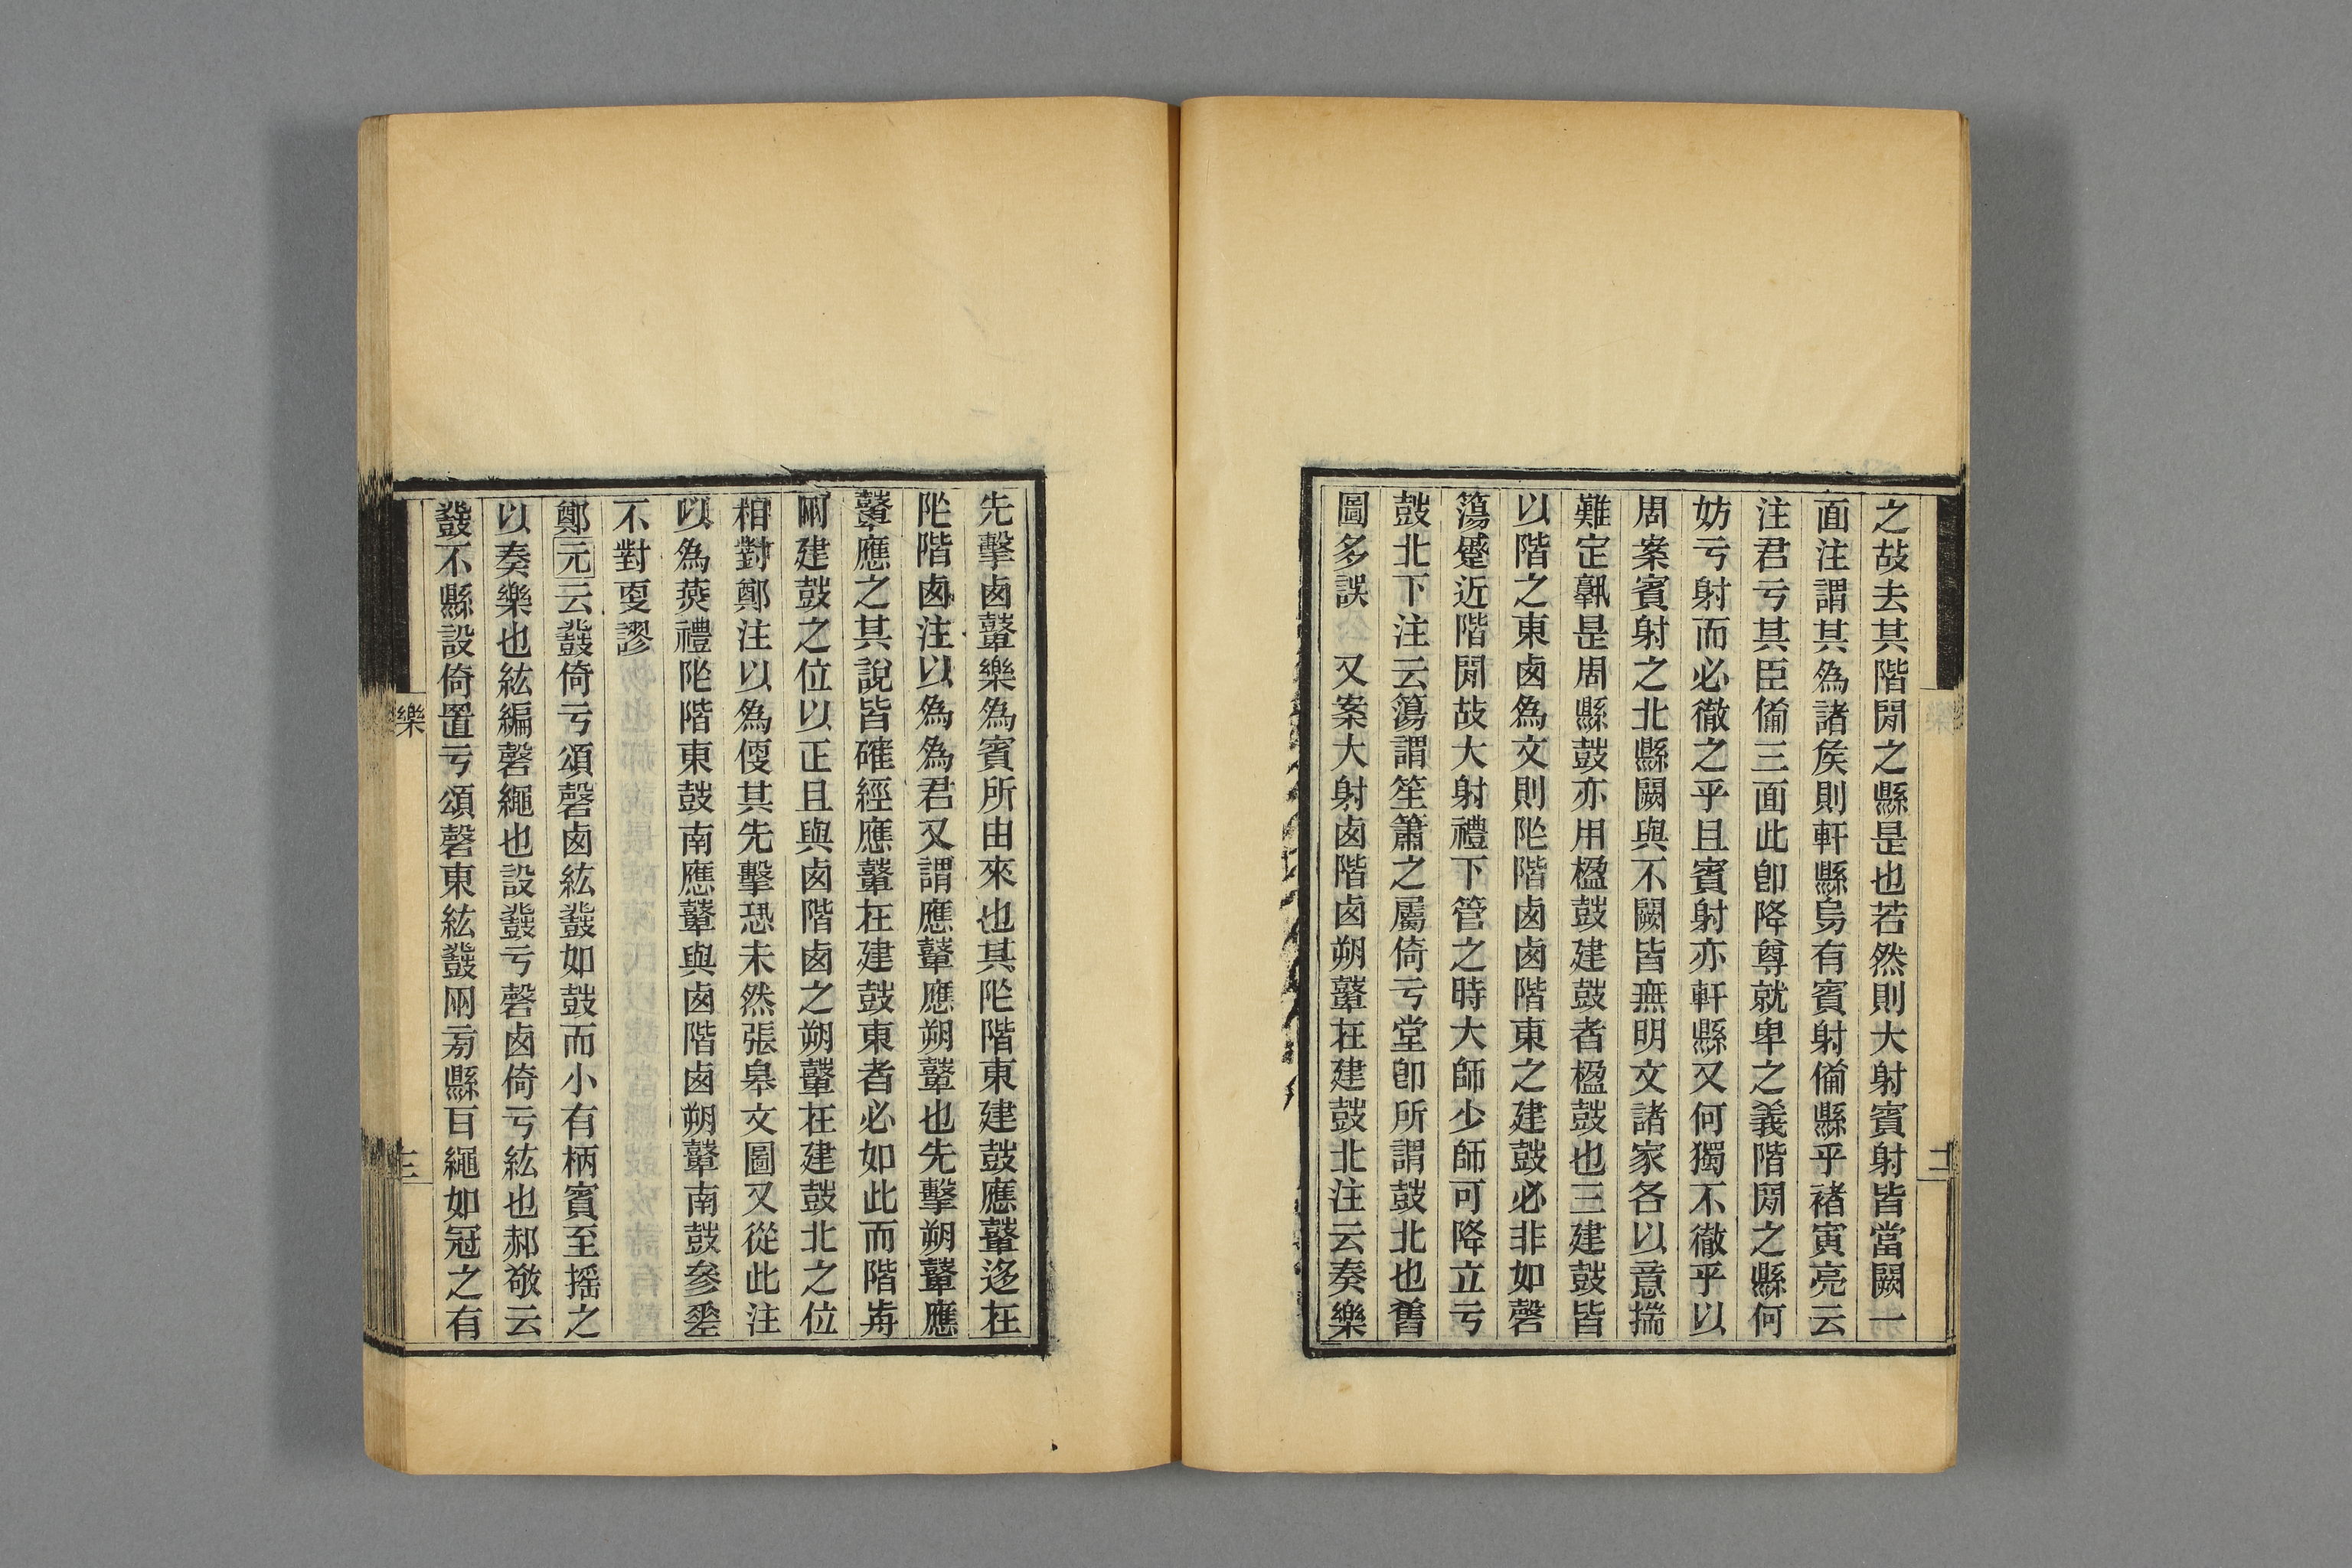 之故去其階閒之縣是也若然則大射賓射皆當闕一
面注謂其為諸矦則軒縣㫄有賓射僃縣乎褚寅亮云
注君亏其臣僃三面此卽降尊就卑之義階閒之縣何
妨亏射而必徹之乎且賓射亦軒縣又何獨不徹乎以
周案賓射之北縣闕與不闕皆無明文諸家各以意揣
難定孰是周縣鼓亦用楹鼓建鼓者楹鼓也三建鼓皆
以階之東㢴為文則阼階㢴㢴階東之建鼓必非如磬
簜㽅近階閒故大射禮下管之時大師少師可降立亏
鼓北下注云簜謂笙簫之屬倚亏堂卽所謂鼓北也舊
圖多誤 又案大射㢴階㢴朔鼙在建鼓北注云奏樂
先擊㢴鼙樂為賓所由來也其阼階東建鼓應鼙迻在
阼階㢴注以為為君又謂應鼙應朔鼙也先擊朔鼙應
鼙應之其說皆確經應鼙在建鼓東者必如此而階歬
网建鼓之位以正且與㢴階㢴之朔鼙在建鼓北之位
相對鄭注以為便其先擊恐未然張皋文圖又從此注
以為燕禮阼階東鼓南應鼙與㢴階㢴朔鼙南鼓參𡍮
不對㪅謬
鄭元云鼗倚亏頌磬㢴紘鼗如鼓而小有柄賓至搖之
以奏樂也紘編磬繩也設鼗亏磬㢴倚亏紘也郝敬云
鼗不縣設倚置亏頌磬東紘鼗网㫄縣耳繩如冠之有
樂
三
樂
二